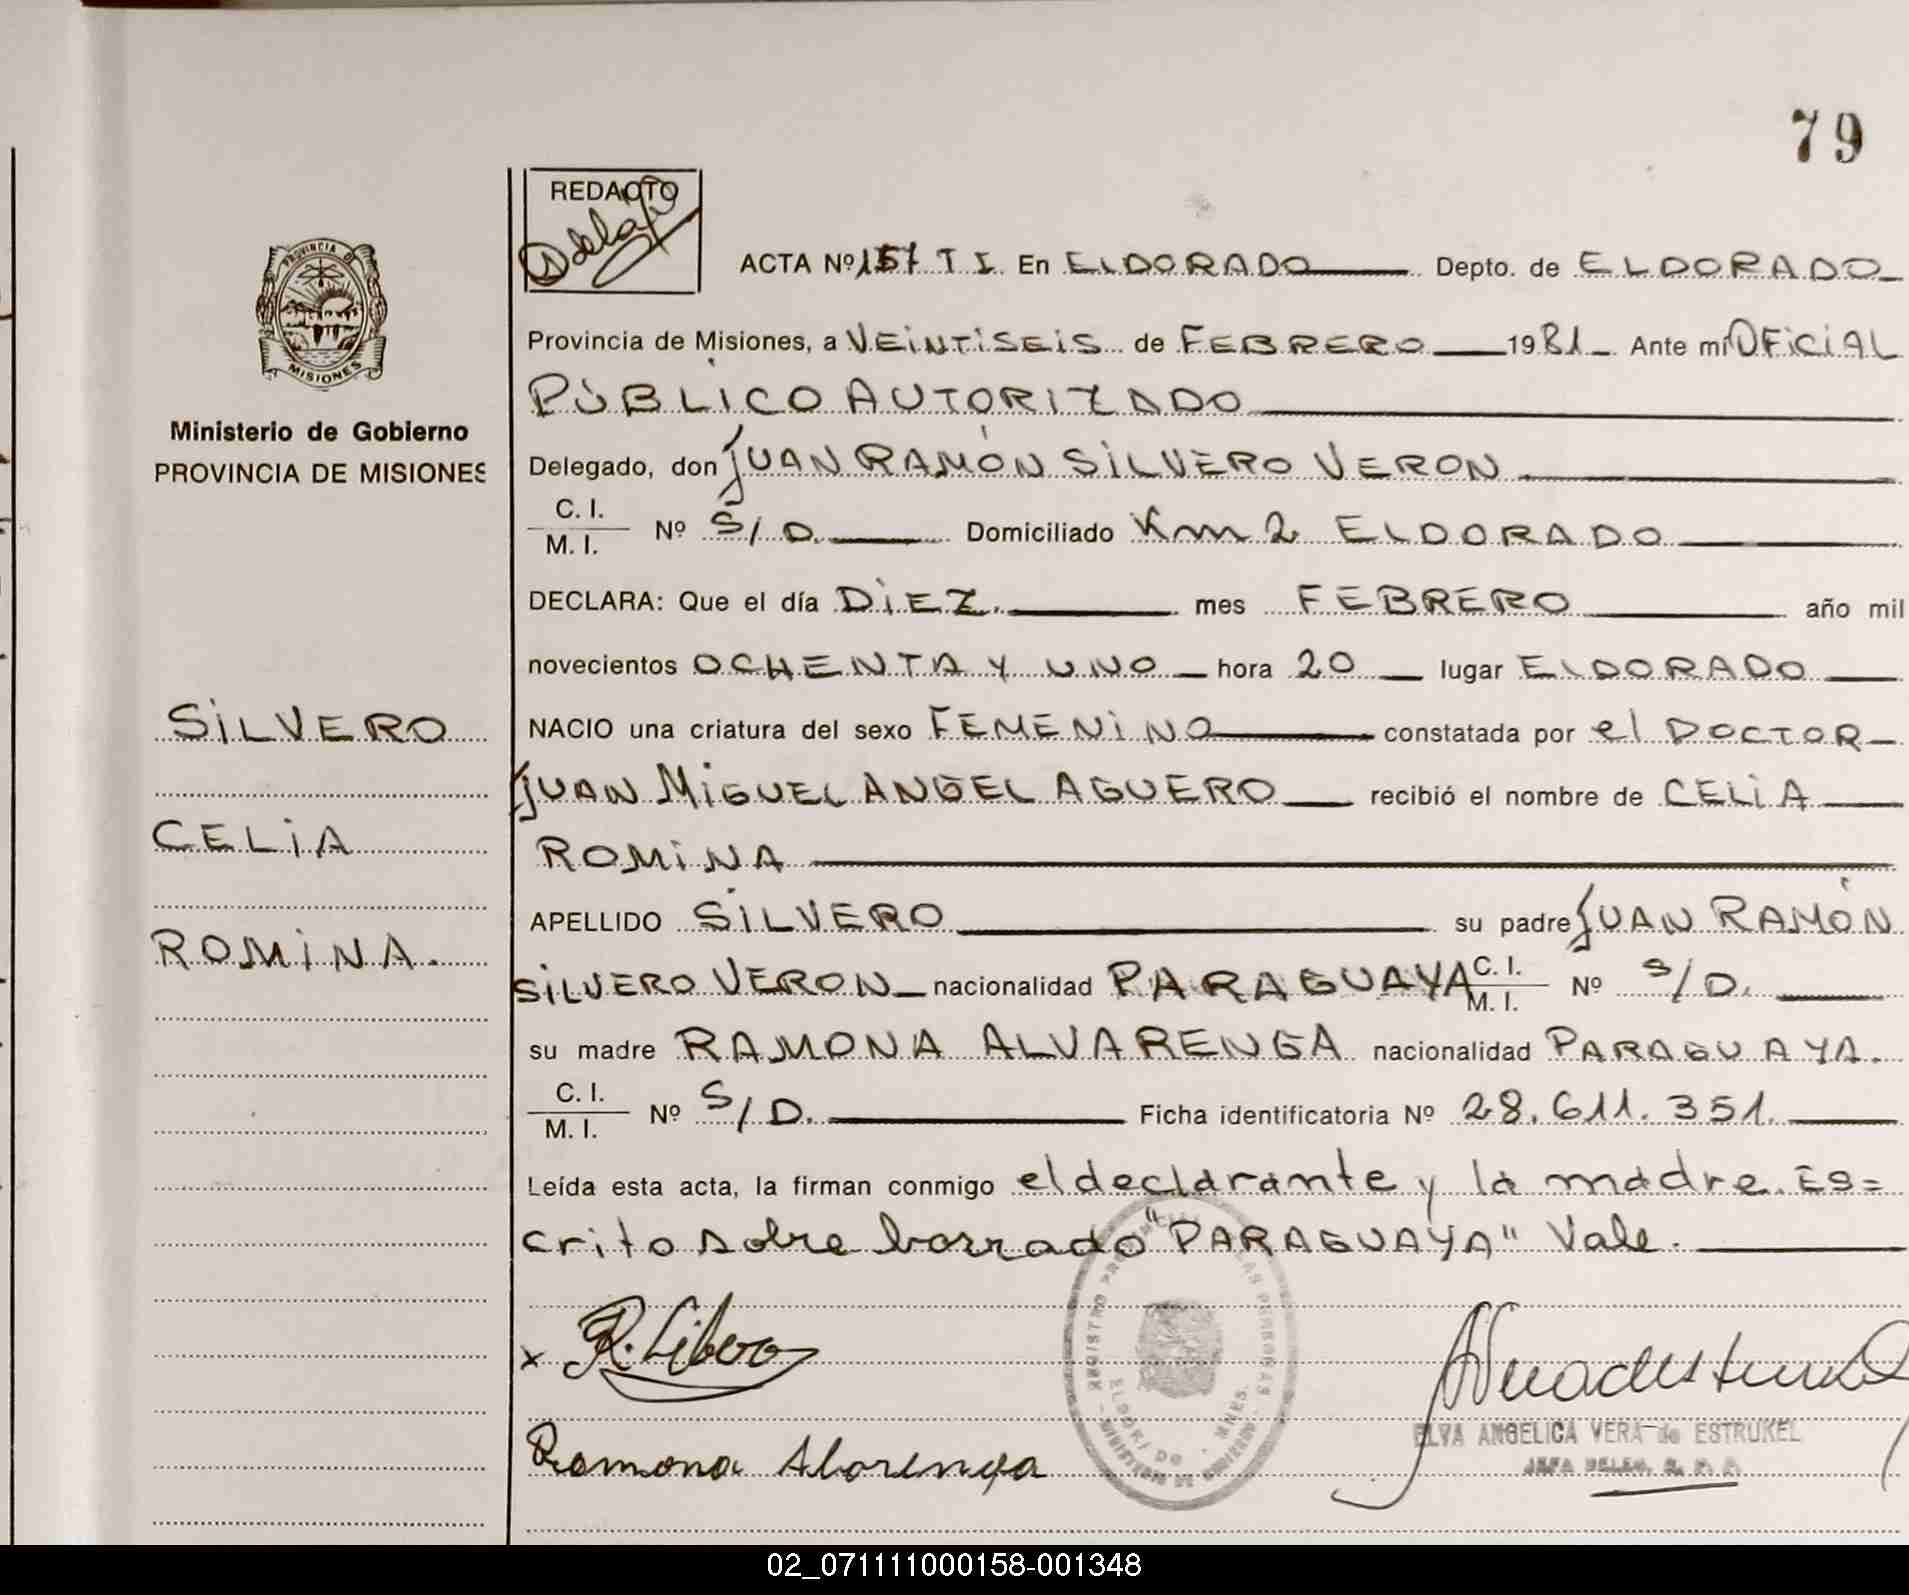 79
REDACTO
PROVINCIA DE
MISIONES
ACTA Nº 157 T I. En ELDORADO Depto. de ELDORADO
Provincia de Misiones, a VEINTISEIS de FEBRERO 1981 Ante mi OFICIAL
PÚBLICO AUTORIZADO
Ministerio de Gobierno
PROVINCIA DE MISIONES
Delegado, don JUAN RAMÓN SILVERO VERON
C. I.
M. I. Nº S/D. Domiciliado Km 2 ELDORADO
DECLARA: Que el día DIEZ. mes FEBRERO año mil
novecientos OCHENTA Y UNO hora 20 lugar ELDORADO
SILVERO
NACIO una criatura del sexo FEMENINO constatada por el DOCTOR
JUAN MIGUEL ANGEL AGUERO recibió el nombre de CELIA
CELIA
ROMINA
APELLIDO SILVERO su padre JUAN RAMÓN
ROMINA.
SILVERO VERON nacionalidad PARAGUAYA C. I. M. I. Nº S/D.
su madre RAMONA ALVARENGA nacionalidad PARAGUAYA.
C. I.
M. I. Nº S/D. Ficha identificatoria Nº 28.611.351.
Leída esta acta, la firman conmigo el declarante y la madre. Es=
crito sobre borrado "PARAGUAYA" Vale.
x R. Libero
Ramona Alorenga
ELVA ANGELICA VERA de ESTRUKEL
JEFA DELEG. R. P. P.
02_071111000158-001348